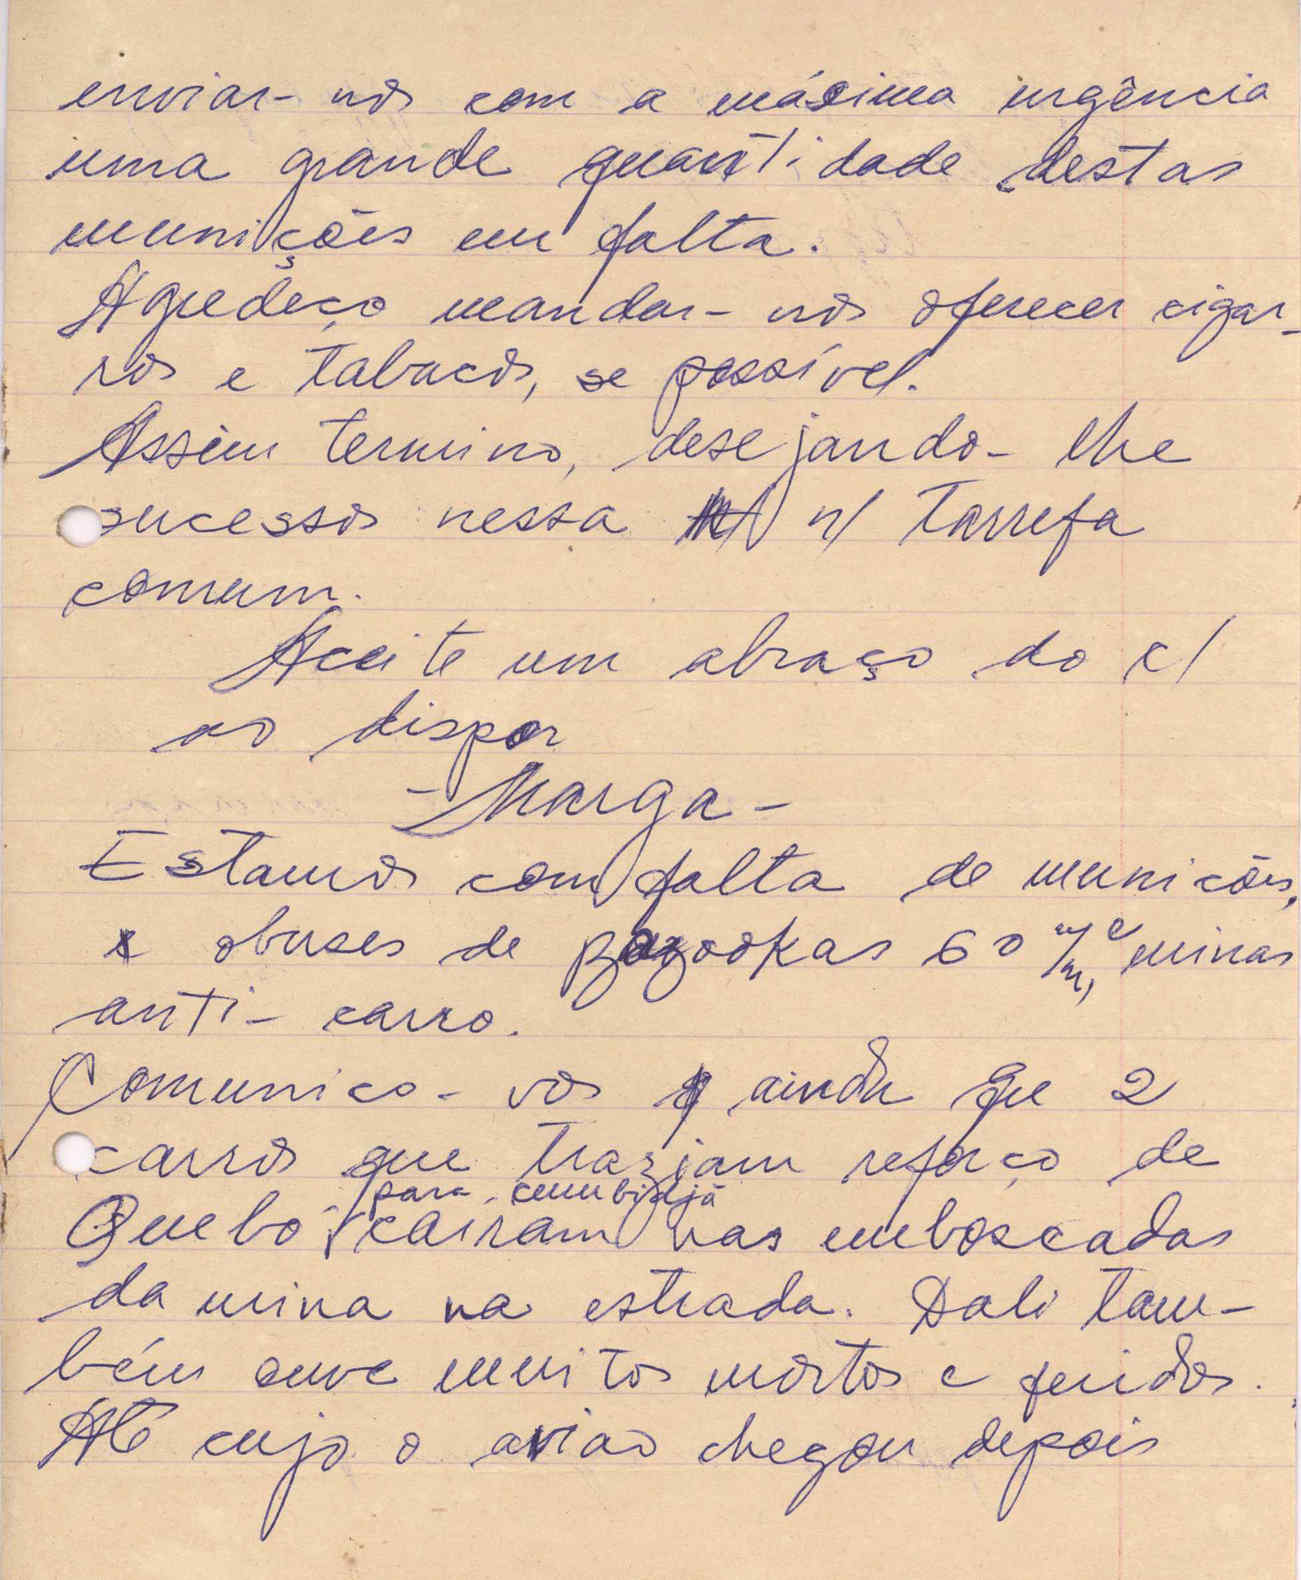 enviar-nos com a máxima urgência
uma grande quantidade destas
munições em falta.
Agredeço mandar-nos oferecer cigar-
ros e tabacos, se possível.
Assim termino, desejando-lhe
sucessos nessa n/ tarrefa
comum.
Aceite um abraço do c/
ao dispor
- Marga -
Estamos com falta de munições,
obuses de bazookas 60 m/m, e minas
anti-carro.
Comunico-vos ainda qe 2
carros que traziam reforço de
para cumbidjã
Quebo, cairam nas emboscadas
da mina na estrada. Dali tam-
bém ouve muitos mortos e feridos.
Até cujo o avião chegou depois